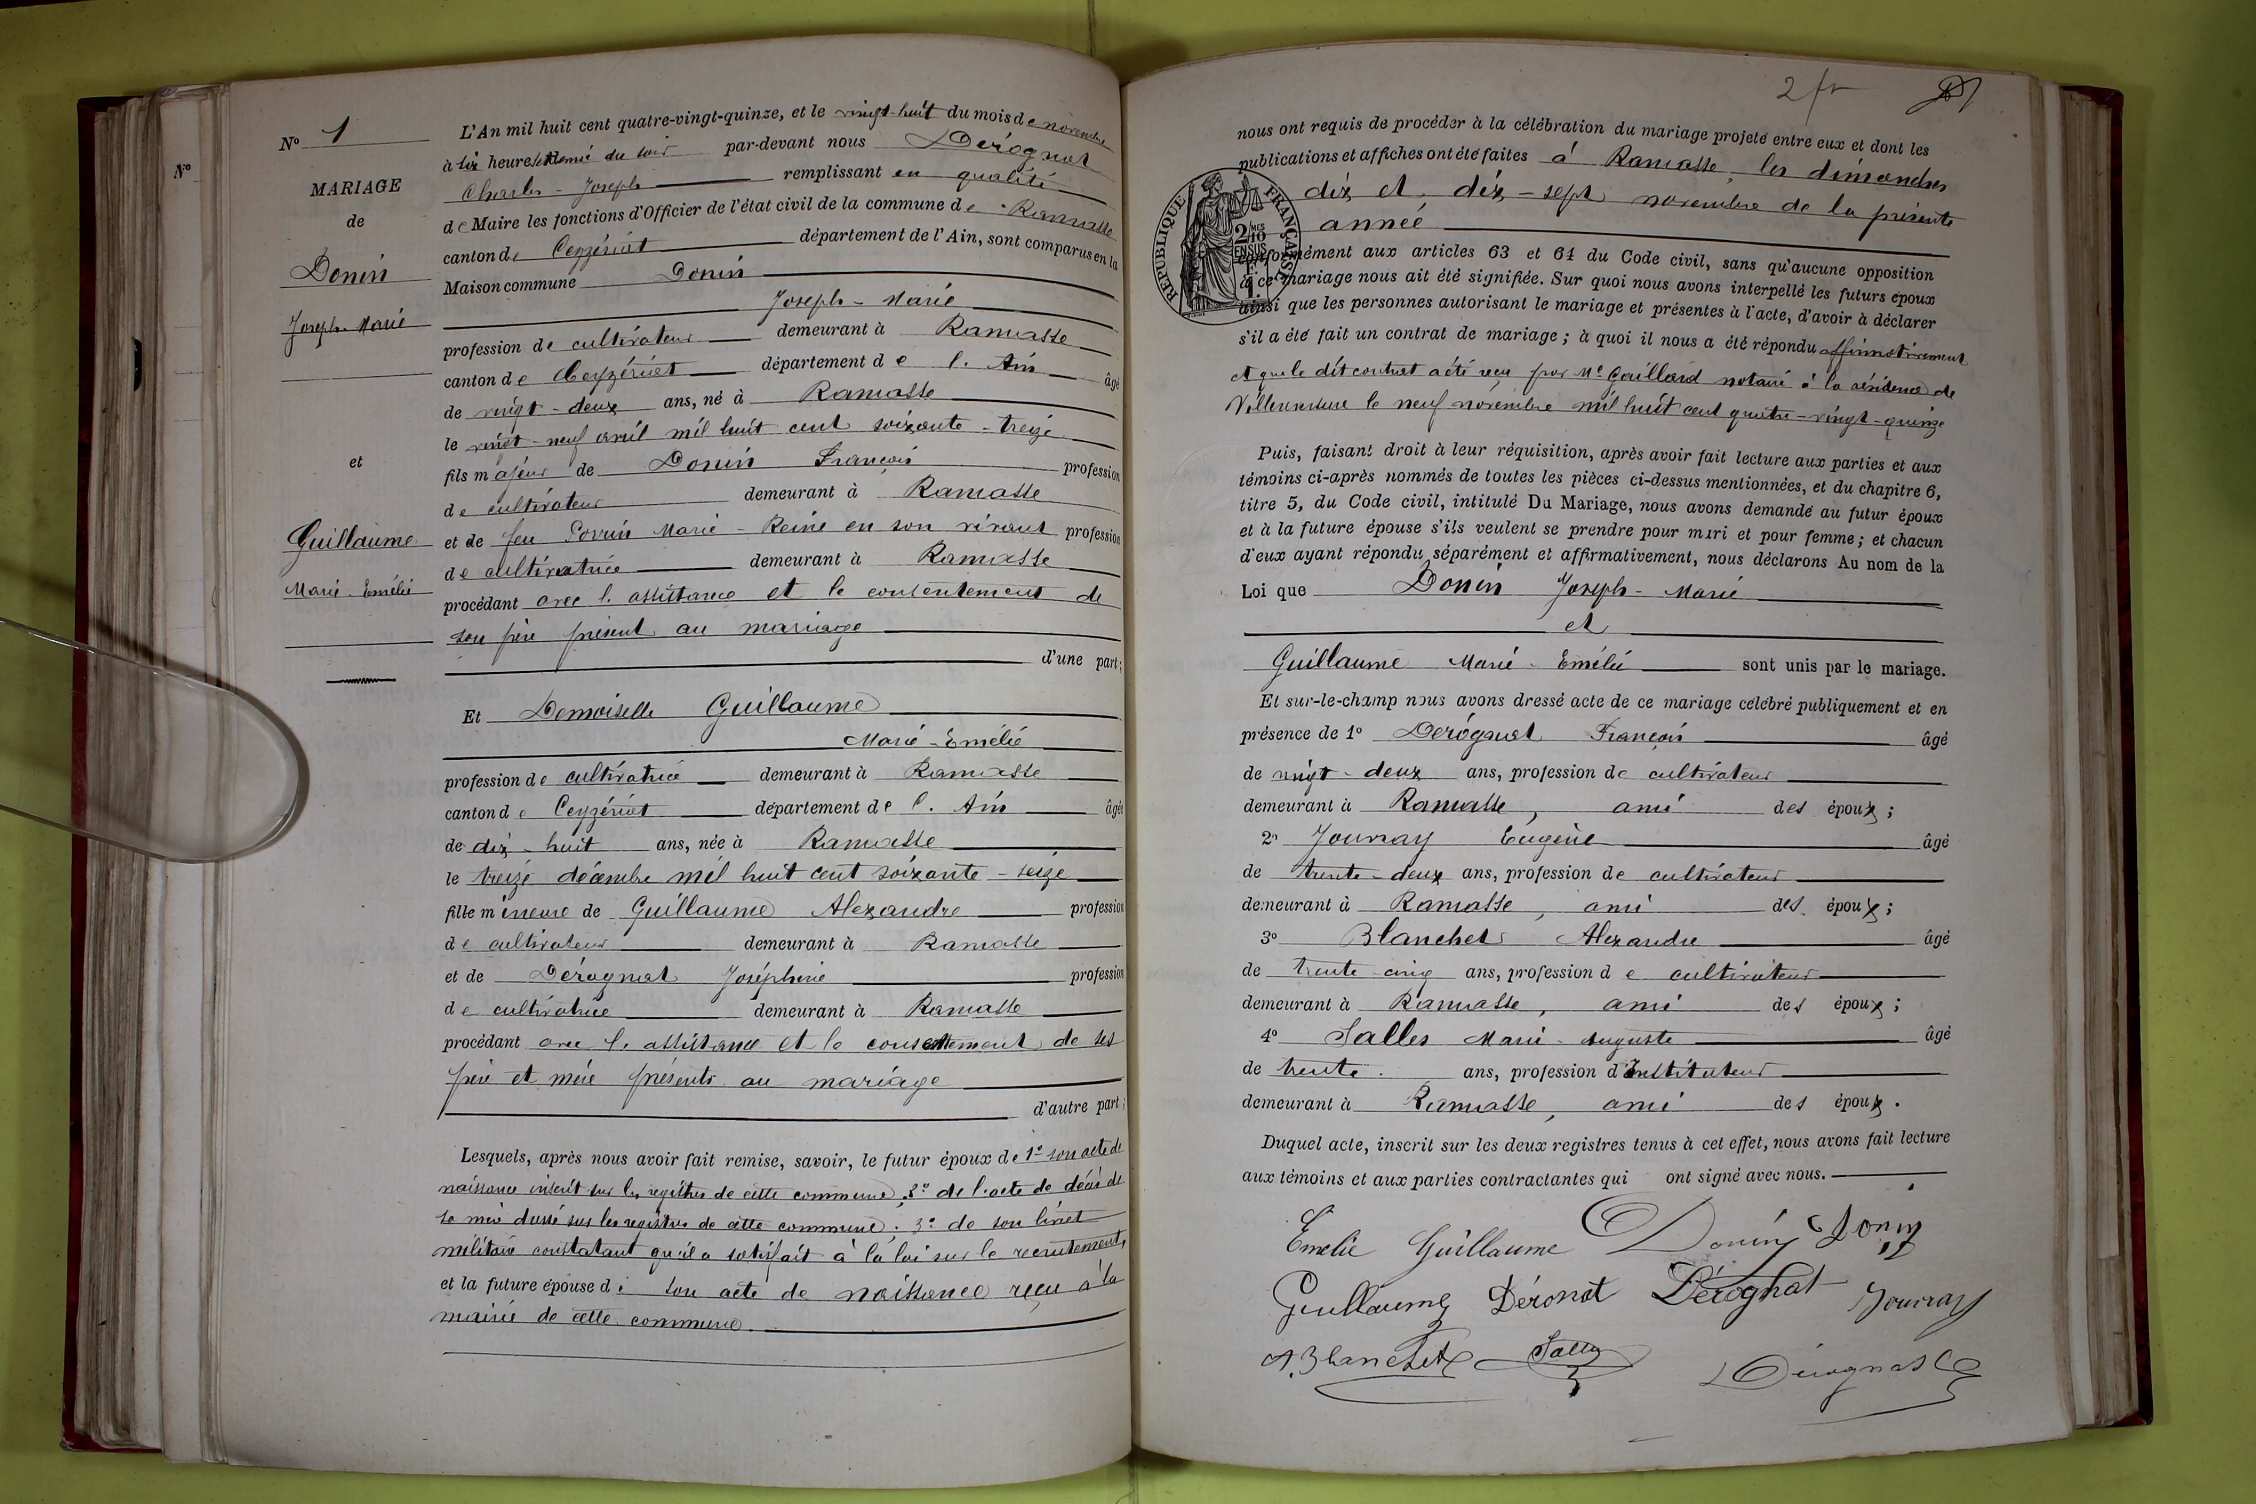 Nº
Nº 1
MARIAGE
de
Donin
Joseph-Marie
et
Guillaume
Marie-Emélie
L'An mil huit cent quatre-vingt-quinze, et le vingt-huit du mois de novembre
à six heures et demie du soir par-devant nous Dérognat
Charles-Joseph remplissant en qualité
de Maire les fonctions d'Officier de l'état civil de la commune de Ramasse
canton de Ceyzériat département de l'Ain, sont comparus en la
Maison commune Donin
Joseph-Marie
profession de cultivateur demeurant à Ramasse
canton de Ceyzériat département de l'Ain âgé
de vingt-deux ans, né à Ramasse
le vingt-neuf avril mil huit cent soixante-treize
fils majeur de Donin François profession
de cultivateur demeurant à Ramasse
et de feu Marie-Reine en son vivant profession
de cultivatrice demeurant à Ramasse
procédant avec l'assistance et le consentement de
son père présent au mariage
d'une part;
Et Demoiselle Guillaume
Marie-Emélie
profession de cultivatrice demeurant à Ramasse
canton de Ceyzériat département de l'Ain âgée
de dix-huit ans, née à Ramasse
le treize décembre mil huit cent soixante-seize
fille mineure de Guillaume Alexandre profession
de cultivateur demeurant à Ramasse
et de Dérognat Joséphine profession
de cultivatrice demeurant à Ramasse
procédant avec l'assistance et le consentement de ses
père et mère présents au mariage
d'autre part;
Lesquels, après nous avoir fait remise, savoir, le futur époux de 1º son acte de
naissance inscrit sur les registres de cette commune; 2º de l'acte de décès de
sa mère dressé sur les registres de cette commune; 3º de son livret
militaire constatant qu'il a satisfait à la loi sur le recrutement,
et la future épouse de son acte de naissance reçu à la
mairie de cette commune.
2 fr
nous ont requis de procéder à la célébration du mariage projeté entre eux et dont les
publications et affiches ont été faites à Ramasse, les dimanches
dix et dix-sept novembre de la présente
année
RÉPUBLIQUE FRANÇAISE
2/10 MES
EN SUS
conformément aux articles 63 et 64 du Code civil, sans qu'aucune opposition
à ce mariage nous ait été signifiée. Sur quoi nous avons interpellé les futurs époux
ainsi que les personnes autorisant le mariage et présentes à l'acte, d'avoir à déclarer
s'il a été fait un contrat de mariage; à quoi il nous a été répondu affirmativement
et que le dit contrat a été reçu par Me Gaillard notaire à la résidence de
Villereversure le neuf novembre mil huit cent quatre-vingt-quinze
Puis, faisant droit à leur réquisition, après avoir fait lecture aux parties et aux
témoins ci-après nommés de toutes les pièces ci-dessus mentionnées, et du chapitre 6,
titre 5, du Code civil, intitulé Du Mariage, nous avons demandé au futur époux
et à la future épouse s'ils veulent se prendre pour mari et pour femme; et chacun
d'eux ayant répondu séparément et affirmativement, nous déclarons Au nom de la
Loi que Donin Joseph-Marie
et
Guillaume Marie-Emélie sont unis par le mariage.
Et sur-le-champ nous avons dressé acte de ce mariage célébré publiquement et en
présence de 1º Dérognat François âgé
de vingt-deux ans, profession de cultivateur
demeurant à Ramasse, ami des époux;
2º Jouvray Eugène âgé
de trente-deux ans, profession de cultivateur
demeurant à Ramasse, ami des époux;
3º Blanchet Alexandre âgé
de trente cinq ans, profession de cultivateur
demeurant à Ramasse, ami des époux;
4º Salles Marie-Auguste âgé
de trente ans, profession d'Instituteur
demeurant à Ramasse, ami des époux.
Duquel acte, inscrit sur les deux registres tenus à cet effet, nous avons fait lecture
aux témoins et aux parties contractantes qui ont signé avec nous.
Emelie Guillaume Donin Donin
Guillaume Déronat Dérognat Jouvray
A. Blanchet Salles Dérognat